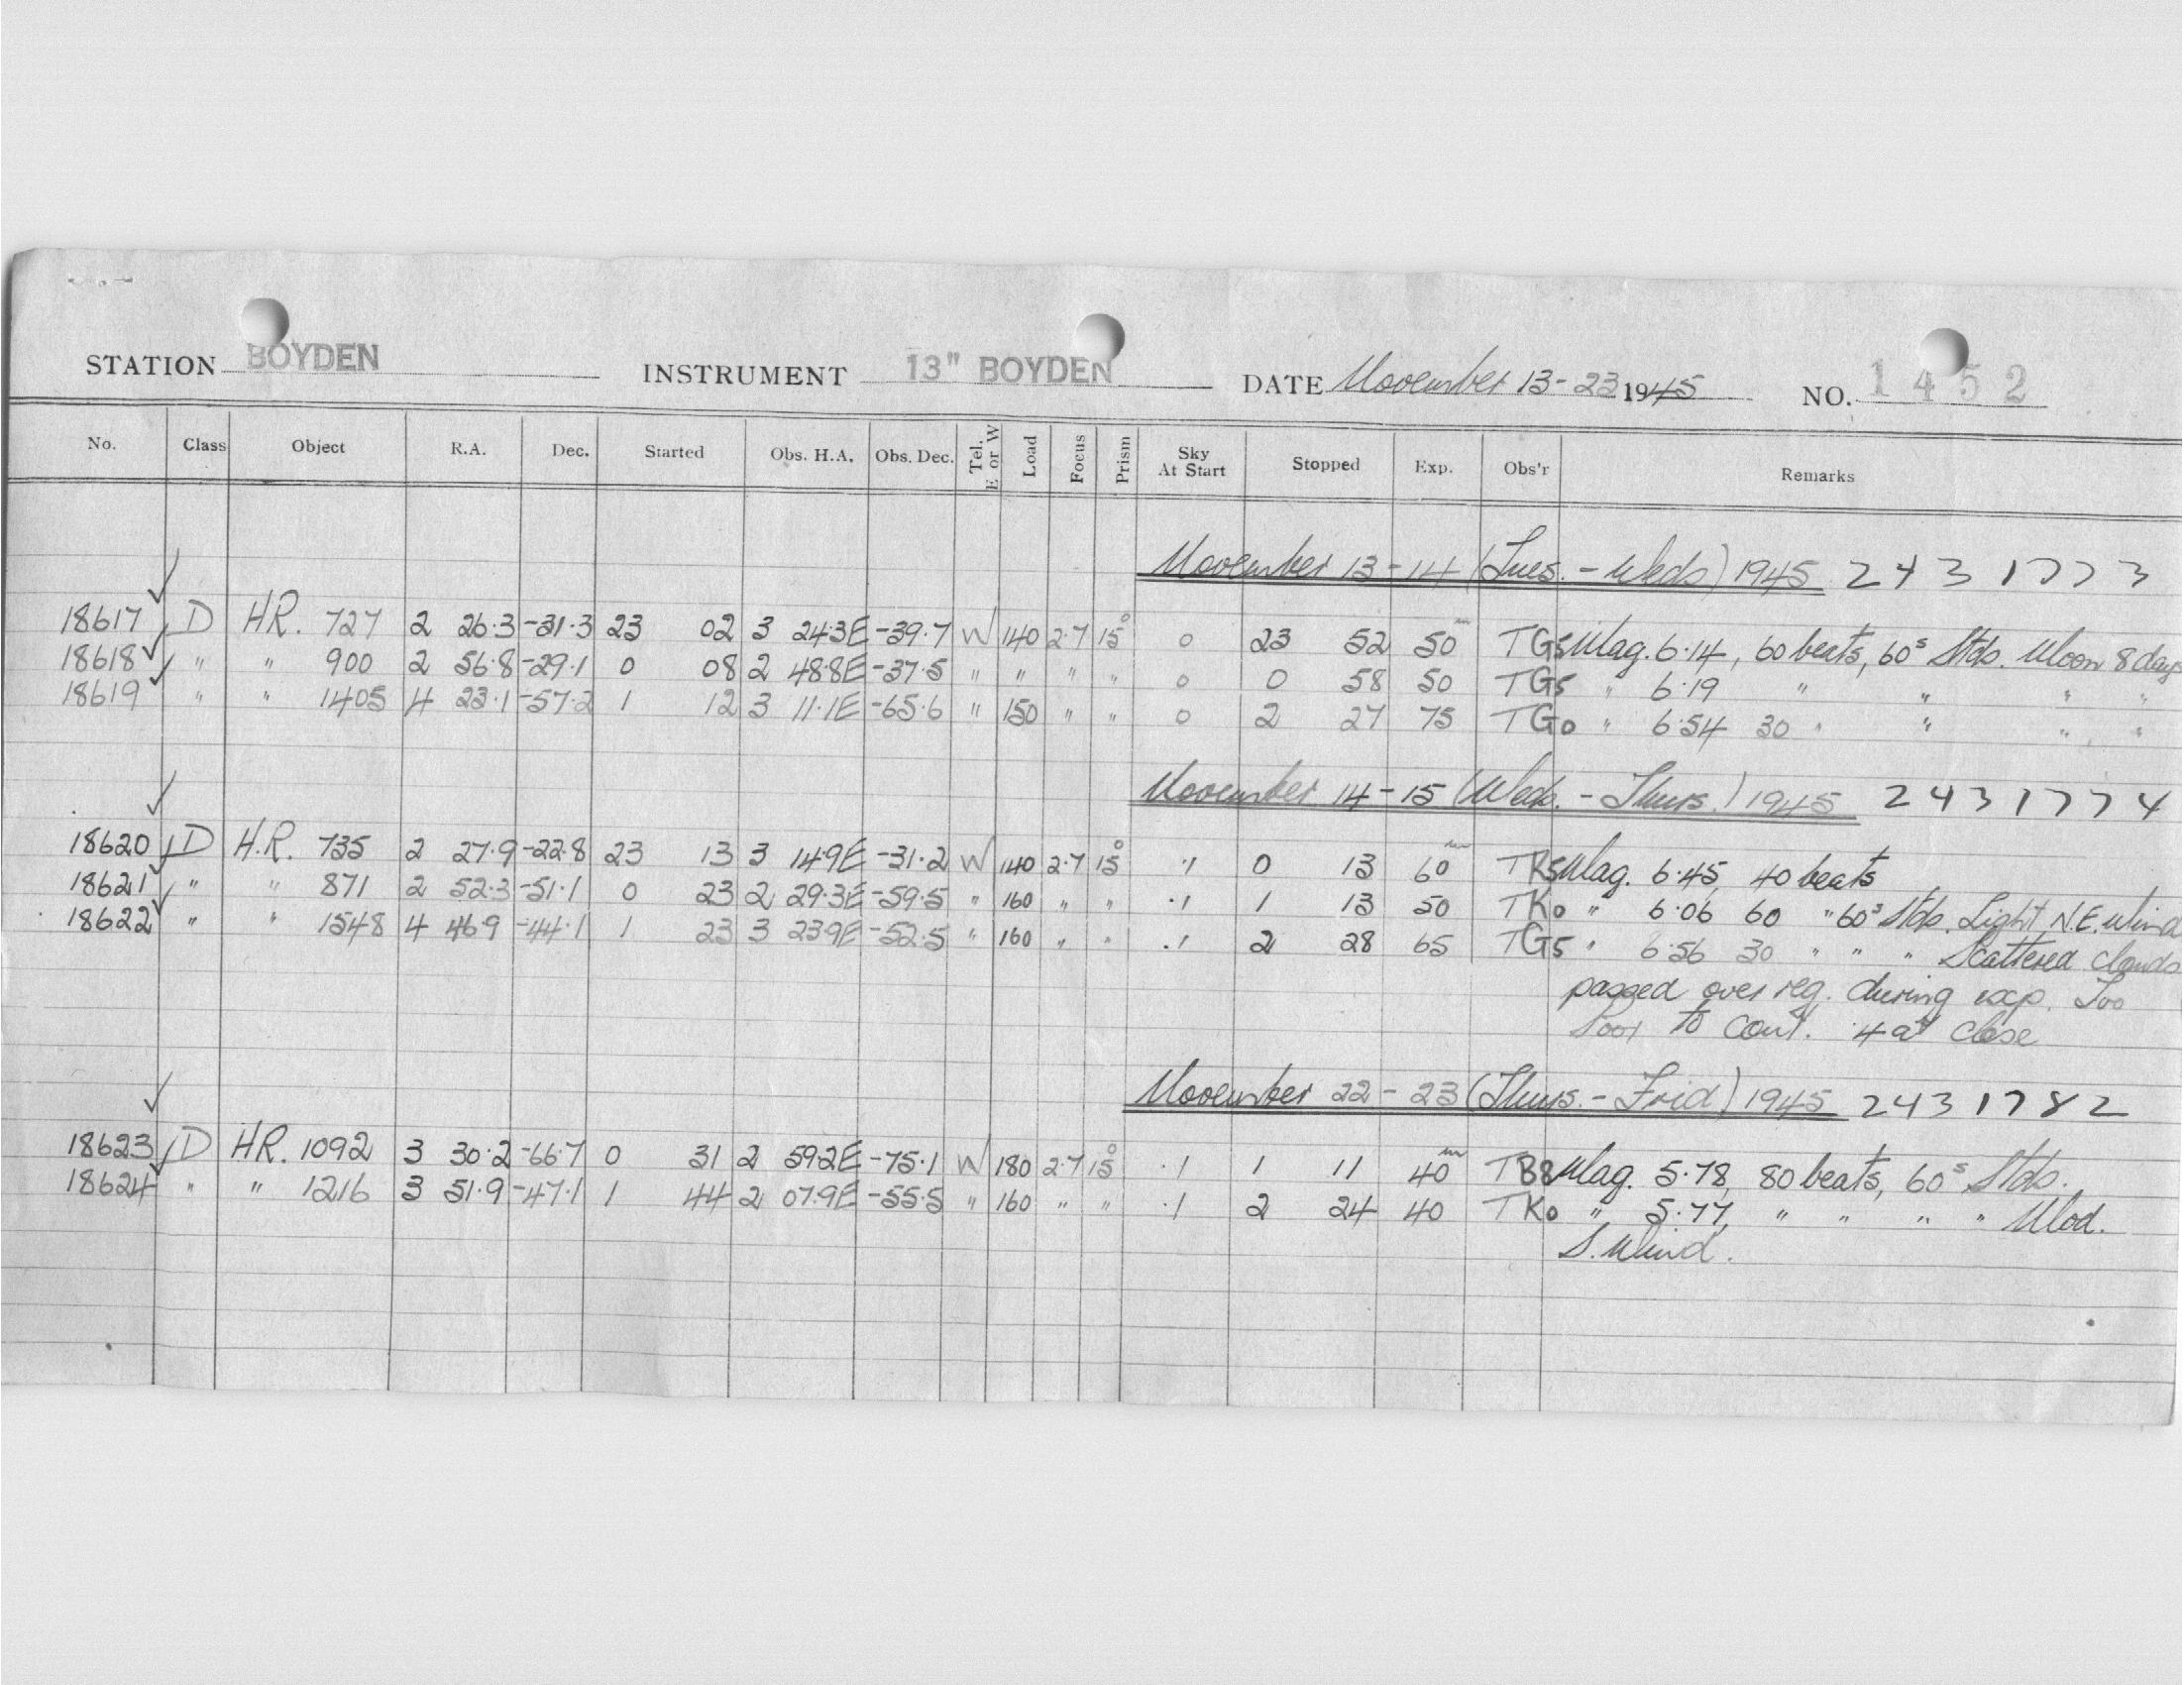 STATION BOYDEN INSTRUMENT 13" BOYDEN DATE November 13-23 1945 NO. 1452
No. Class Object R.A. Dec. Started Obs. H.A. Obs. Dec. Tel. E or W Load Focus Prism Sky At Start Stopped Exp. Obs'r Remarks
November 13-14 (Tues. - Weds) 1945 2431773
18617 D HR. 727 2 26.3 -31.3 23 02 3 24.3E -39.7 W 140 2.7 15° 0 23 52 50m T G5 Mag. 6.14, 60 beats, 60s Stds. Moon 8 days
18618 " " 900 2 56.8 -29.1 0 08 2 48.8E -37.5 " " " " 0 0 58 50 T G5 " 6.19 " " " "
18619 " " 1405 4 23.1 -57.2 1 12 3 11.1E -65.6 " 150 " " 0 2 27 75 T G0 " 6.54 30 " " " "
November 14-15 (Weds. - Thurs.) 1945 2431774
18620 D H.R. 735 2 27.9 -22.8 23 13 3 14.9E -31.2 W 140 2.7 15° .1 0 13 60m T K5 Mag. 6.45, 40 beats
18621 " " 871 2 52.3 -51.1 0 23 2 29.3E -59.5 " 160 " " .1 1 13 50 T K0 " 6.06 60 " 60s Stds. Light N.E. Wind
18622 " " 1548 4 46.9 -44.1 1 23 3 23.9E -52.5 " 160 " " .1 2 28 65 T G5 " 6.56 30 " " " Scattered clouds
passed over reg. during exp. Too
Poor to cont. .4 at close
November 22-23 (Thurs. - Frid) 1945 2431782
18623 D HR. 1092 3 30.2 -66.7 0 31 2 59.2E -75.1 W 180 2.7 15° .1 1 11 40m T B8 Mag. 5.78, 80 beats, 60s Stds.
18624 " " 1216 3 51.9 -47.1 1 44 2 07.9E -55.5 " 160 " " .1 2 24 40 T K0 " 5.77, " " " " Mod.
S. Wind.